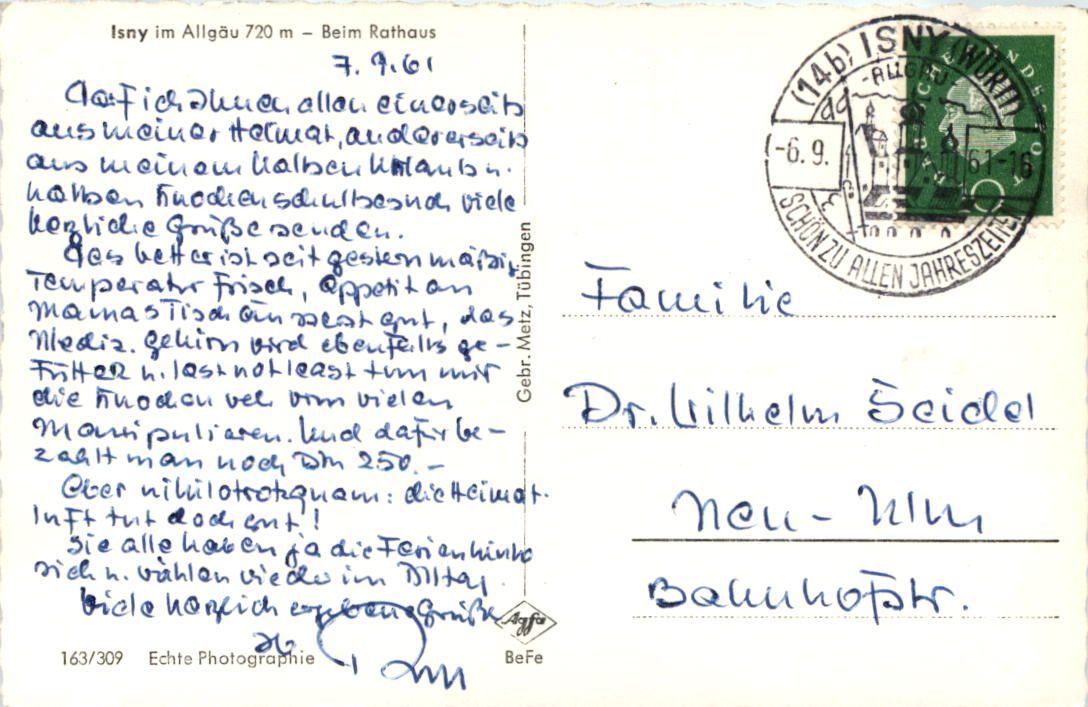 Isny im Allgäu 720 m – Beim Rathaus
7.9.61
Darf ich Ihnen allen einerseits
aus meiner Heimat, andererseits
aus meinem halben Urlaub u.
halben Knochenschulbesuch viele
herzliche Grüße senden.
Das Wetter ist seit gestern mäßig,
Temperatur frisch, Appetit an
Mamas Tisch äusserst gut, das
Mediz. Gehirn wird ebenfalls ge-
füttert u. last not least tun mir
die Knochen weh vom vielen
Manipulieren. Und dafür be-
zahlt man noch DM 250.-
Aber nihilotrotzquam: die Heimat-
luft tut doch gut!
Sie alle haben ja die Ferien hinter
sich u. wühlen wieder im Alltag.
Viele herzlich ergebene Grüße
Ihr
163/309 Echte Photographie
Gebr. Metz, Tübingen
Agfa
BeFe
(14b) ISNY (WÜRTT)
-ALLGÄU-
-6.9.61-16
SCHÖN ZU ALLEN JAHRESZEITEN
DEUTSCHE BUNDESPOST
Familie
Dr. Wilhelm Seidel
Neu-Ulm
Bahnhofstr.